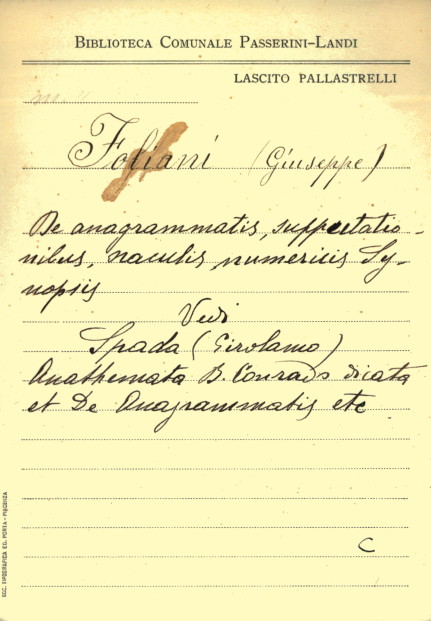 BIBLIOTECA COMUNALE PASSERINI-LANDI
LASCITO PALLASTRELLI
Foliani (Giuseppe)
De anagrammatis, suppeetatio-
nibus, naculis numericis Sy-
nopsis
Vedi
Spada (Girolamo)
Anathemata B. Conrado dicata
et De Anagrammatis etc
C
SOC. TIPOGRAFICA ED. PORTA - PIACENZA